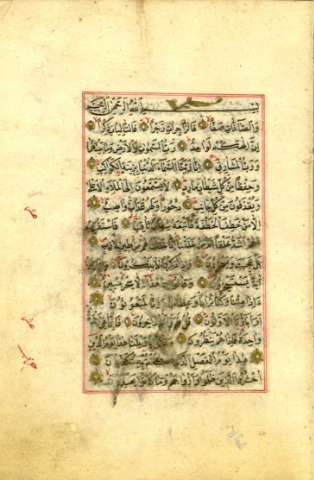 بسم الله الرحمن الرحيم
والصافات صفا فالزاجرات زجرا فالتاليات ذكرا
ان الهكم لواحد رب السموات والارض وما بينهما
ورب المشارق انا زينا السماء الدنيا بزينة الكواكب
وحفظا من كل شيطان مارد لا يسمعون الى الملاء الاعلى
ويقذفون من كل جانب دحورا ولهم عذاب واصب
الا من خطف الخطفة فاتبعه شهاب ثاقب فاستفتهم
اهم اشد خلقا ام من خلقنا انا خلقناهم من طين لازب
بل عجبت ويسخرون واذا ذكروا لا يذكرون واذا راوا
اية يستسخرون وقالوا ان هذا الا سحر مبين
ءاذا متنا وكنا ترابا وعظاما ءانا لمبعوثون
اواباؤنا الاولون قل نعم وانتم داخرون فانما هي زجرة
واحدة فاذا هم ينظرون وقالوا يا ويلنا هذا يوم الدين
هذا يوم الفصل الذي كنتم به تكذبون
احشروا الذين ظلموا وازواجهم وما كانوا يعبدون